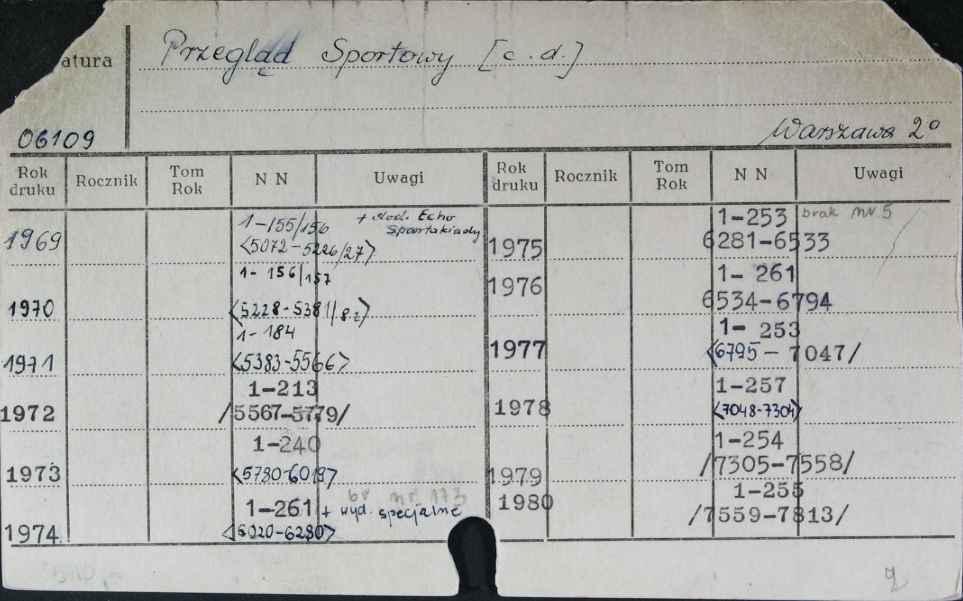 atura
Przegląd Sportowy [c.d.]
06109
Warszawa 2°
Rok druku Rocznik Tom Rok NN Uwagi
1969 1-155/156 + dod. Echo Spartakiady
<5072-5226/27>
1970 1-156/157
<5228-5381/82>
1971 1-184
<5383-5566>
1972 1-213
/5567-5779/
1973 1-240
<5780-6019>
1974. 1-261 + wyd. specjalne br nr 173
<6020-6280>
Rok druku Rocznik Tom Rok NN Uwagi
1975 1-253 brak nr 5
6281-6533
1976 1-261
6534-6794
1977 1-253
<6795-7047/
1978 1-257
<7048-7304>
1979 1-254
/7305-7558/
1980 1-255
/7559-7813/